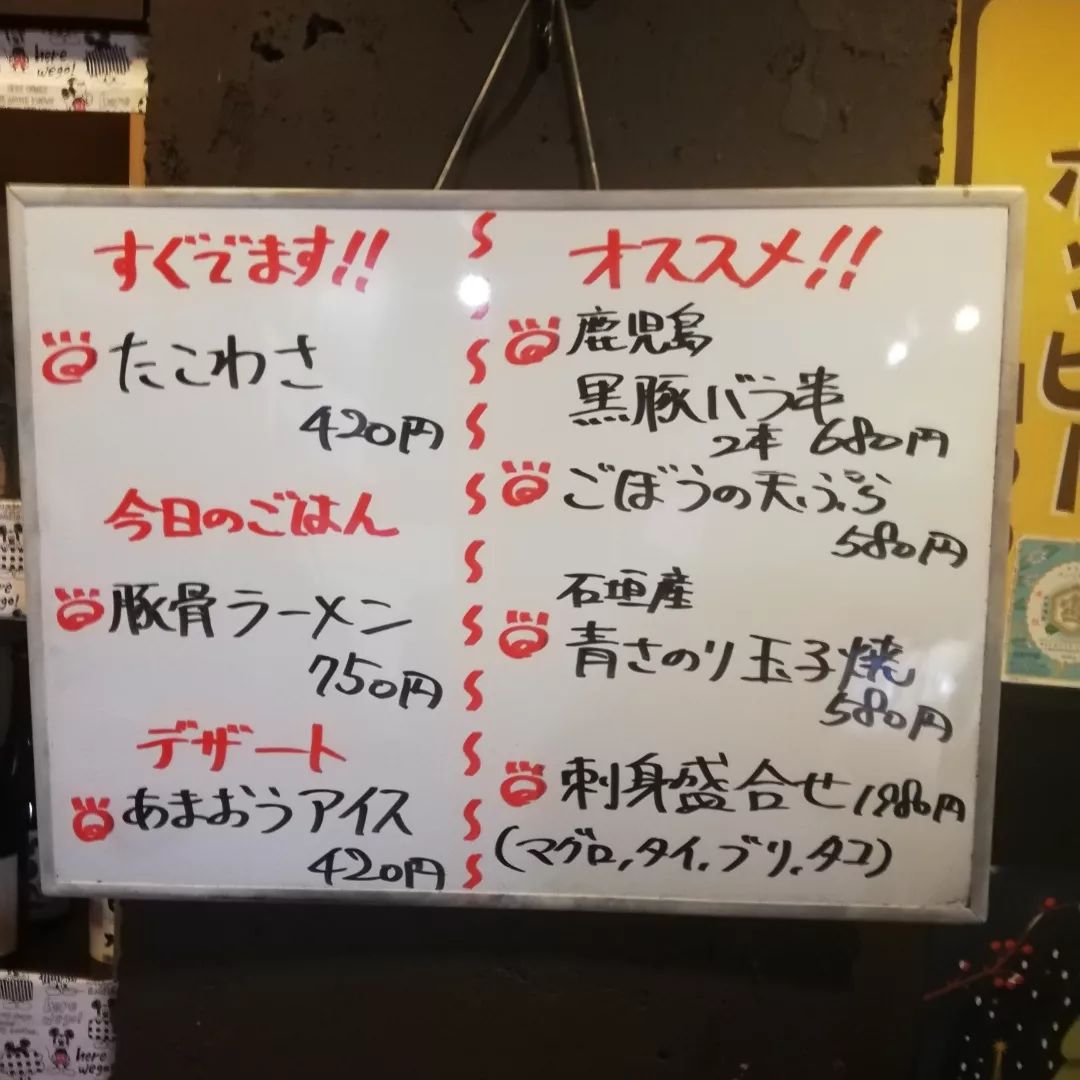 すぐでます!!
たこわさ
420円
今日のごはん
豚骨ラーメン
750円
デザート
あまおうアイス
420円
オススメ!!
鹿児島
黒豚バラ串
2本 680円
ごぼうの天ぷら
580円
石垣産
青さのり玉子焼
580円
刺身盛合せ 1980円
(マグロ,タイ,ブリ,タコ)
ホッピー
here
wego!
here
wego!